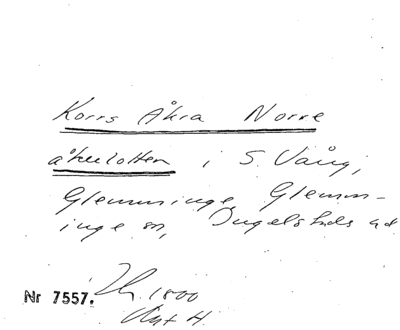 Korrs Åkra Norre
åkerlotten i S. Vång,
Glemminge, Glemm-
inge sn, Ingelstads hd
1800
Nr 7557.